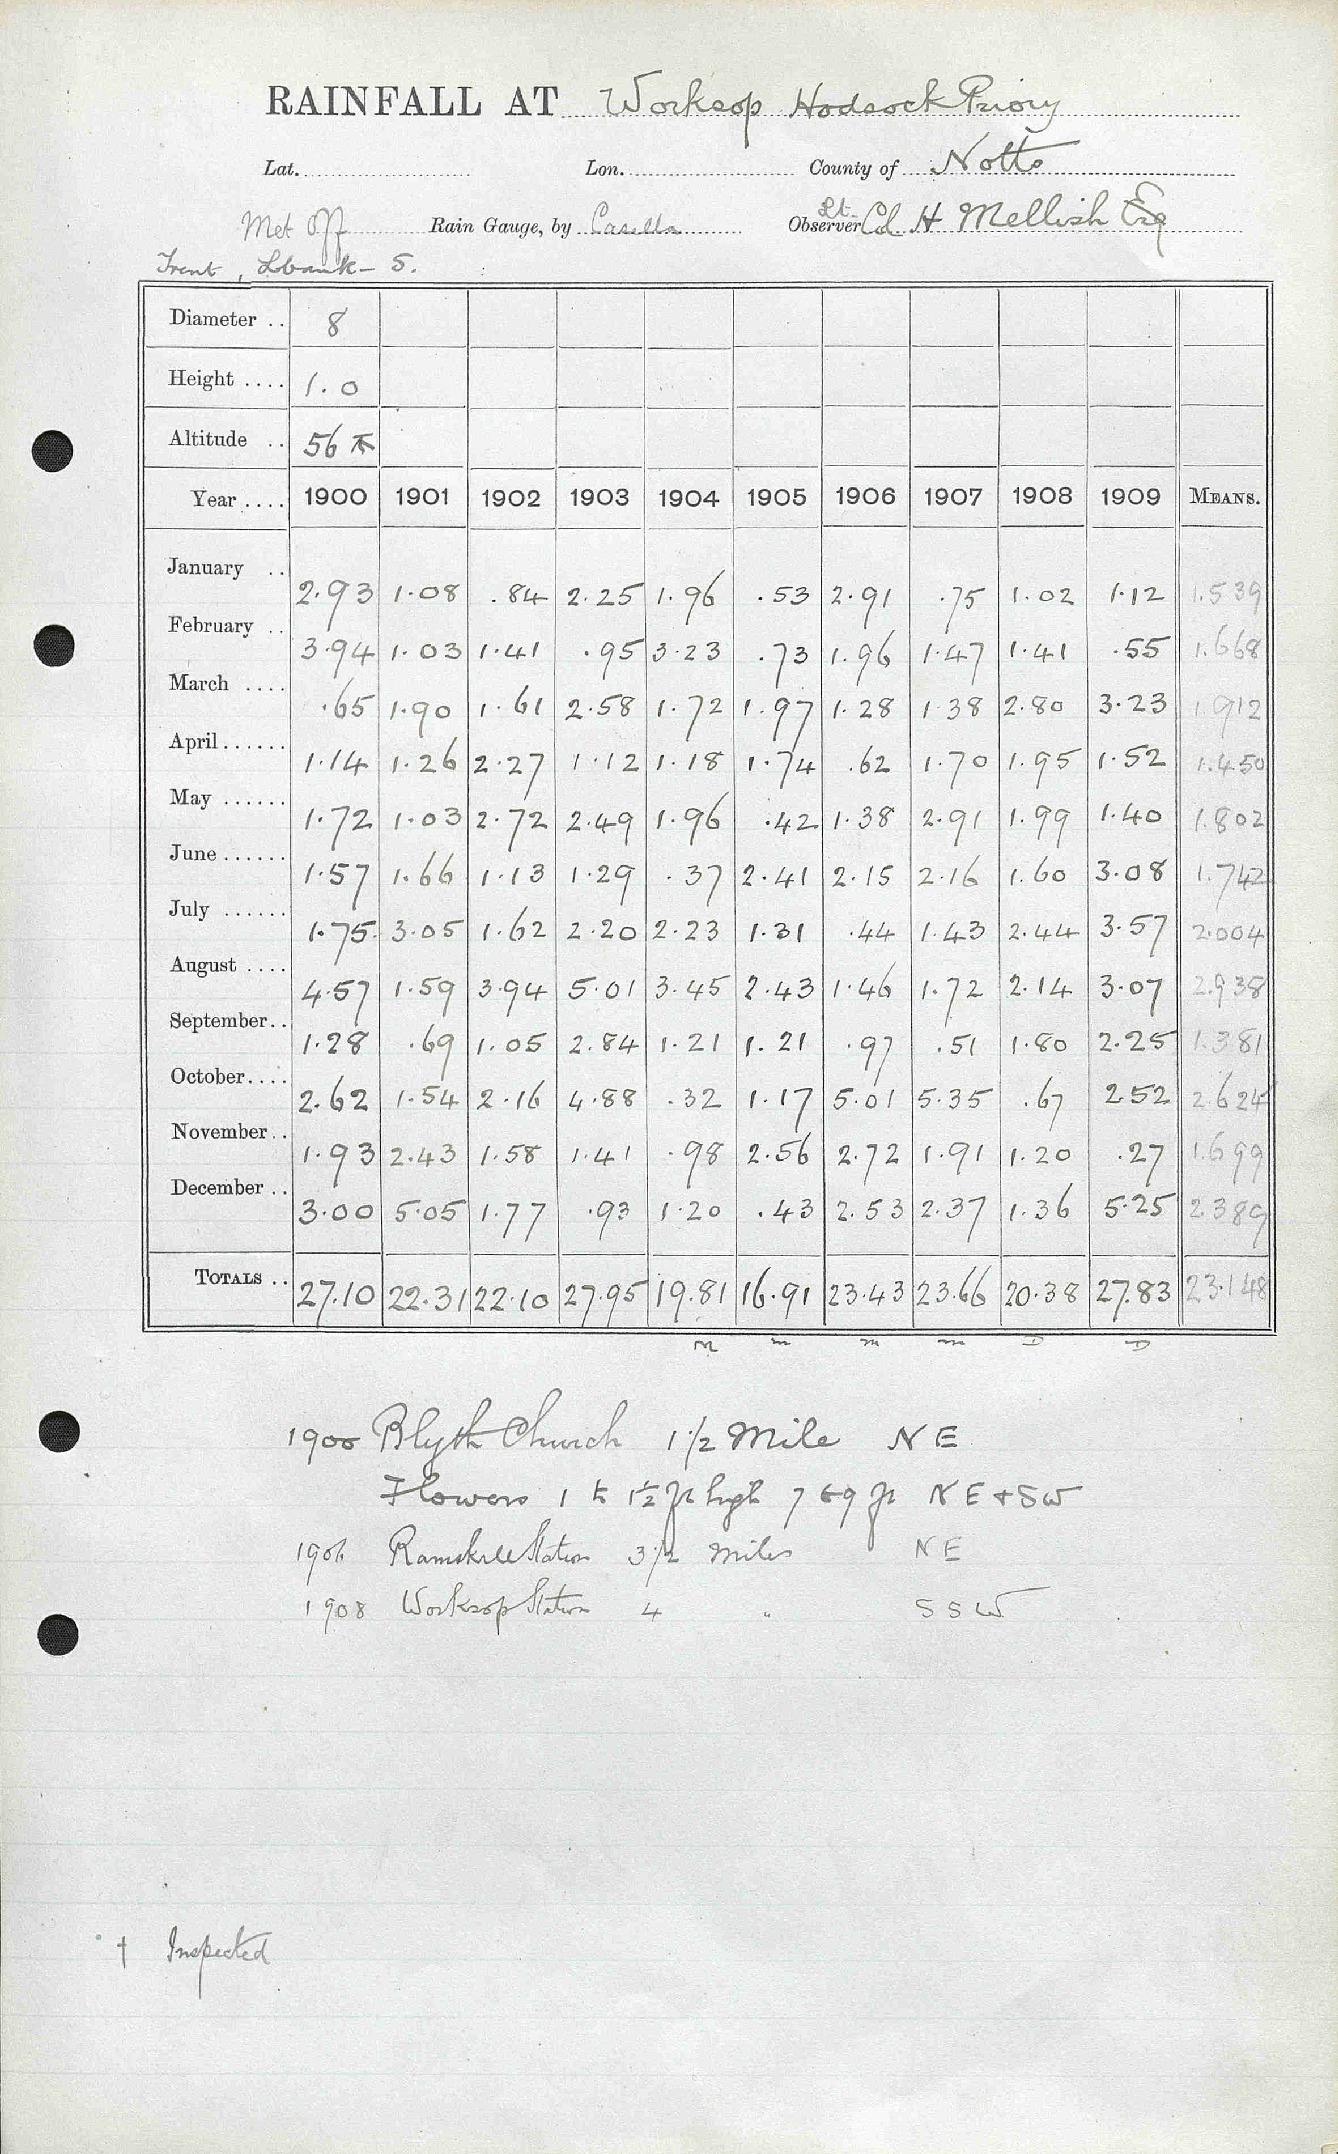 RAINFALL AT Worksop Hodsock Priory
Lat. Lon. County of Notts
Met Off Rain Gauge, by Casella Observer Lt. Col. H Mellish Esq
Trent, Lbank - 5.
Diameter .. 8
Height .... 1.0
Altitude .. 56
Year .... 1900 1901 1902 1903 1904 1905 1906 1907 1908 1909 MEANS.
January .. 2.93 1.08 .84 2.25 1.96 .53 2.91 .75 1.02 1.12 1.539
February .. 3.94 1.03 1.41 .95 3.23 .73 1.96 1.47 1.41 .55 1.668
March .... .65 1.90 1.61 2.58 1.72 1.97 1.28 1.38 2.80 3.23 1.912
April ...... 1.14 1.26 2.27 1.12 1.18 1.74 .62 1.70 1.95 1.52 1.450
May ...... 1.72 1.03 2.72 2.49 1.96 .42 1.38 2.91 1.99 1.40 1.802
June ...... 1.57 1.66 1.13 1.29 .37 2.41 2.15 2.16 1.60 3.08 1.742
July ...... 1.75 3.05 1.62 2.20 2.23 1.31 .44 1.43 2.44 3.57 2.004
August .... 4.57 1.59 3.94 5.01 3.45 2.43 1.46 1.72 2.14 3.07 2.938
September .. 1.28 .69 1.05 2.84 1.21 1.21 .97 .51 1.80 2.25 1.381
October .... 2.62 1.54 2.16 4.88 .32 1.17 5.01 5.35 .67 2.52 2.624
November .. 1.93 2.43 1.58 1.41 .98 2.56 2.72 1.91 1.20 .27 1.699
December .. 3.00 5.05 1.77 .93 1.20 .43 2.53 2.37 1.36 5.25 2.389
TOTALS .. 27.10 22.31 22.10 27.95 19.81 16.91 23.43 23.66 20.38 27.83 23.148
M m m m D D
1900 Blyth Church 1 1/2 Mile NE
Flowers 1 to 1½ ft high 7 to 9 ft NE + SW
1906 Ranskill Station 3 1/2 miles NE
1908 Worksop Station 4 " SSW
† Inspected